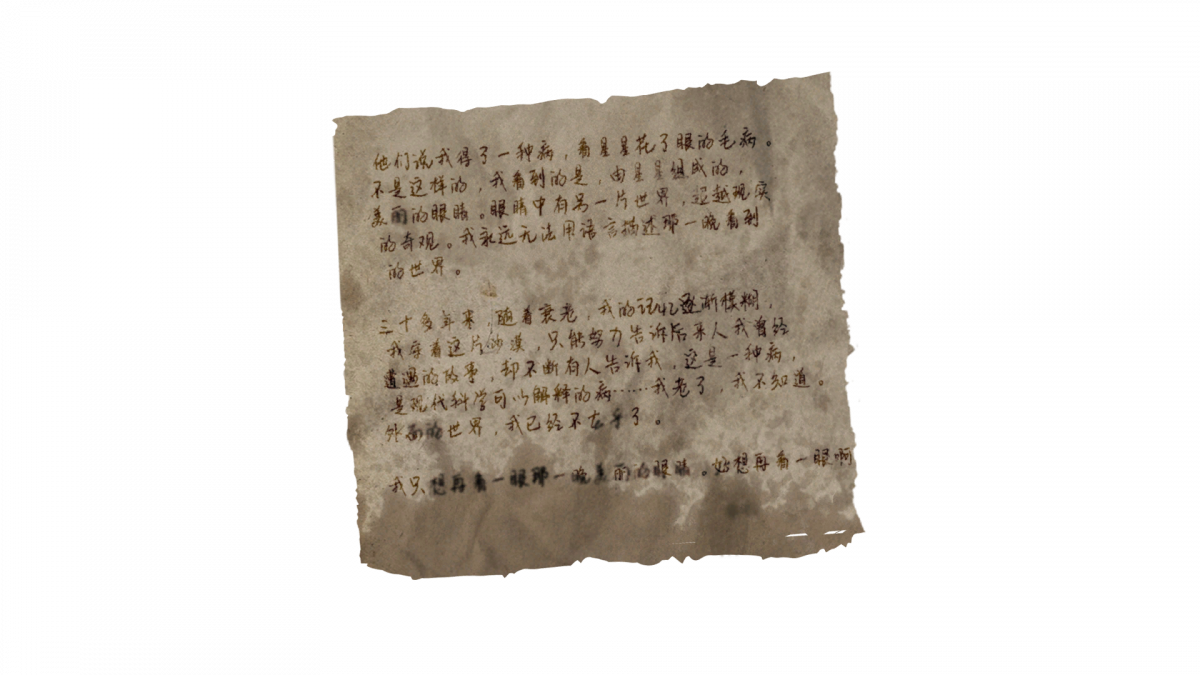 他们说我得了一种病，看星星花了眼的毛病。
不是这样的，我看到的是，由星星组成的，
美丽的眼睛。眼睛中有另一片世界，超越现实
的奇观。我永远无法用语言描述那一晚看到
的世界。
三十多年来，随着衰老，我的记忆逐渐模糊，
我守着这片沙漠，只能努力告诉后来人我曾经
遭遇的故事，却不断有人告诉我，这是一种病，
是现代科学可以解释的病……我老了，我不知道。
外面的世界，我已经不在乎了。
我只想再看一眼那一晚美丽的眼睛。好想再看一眼啊